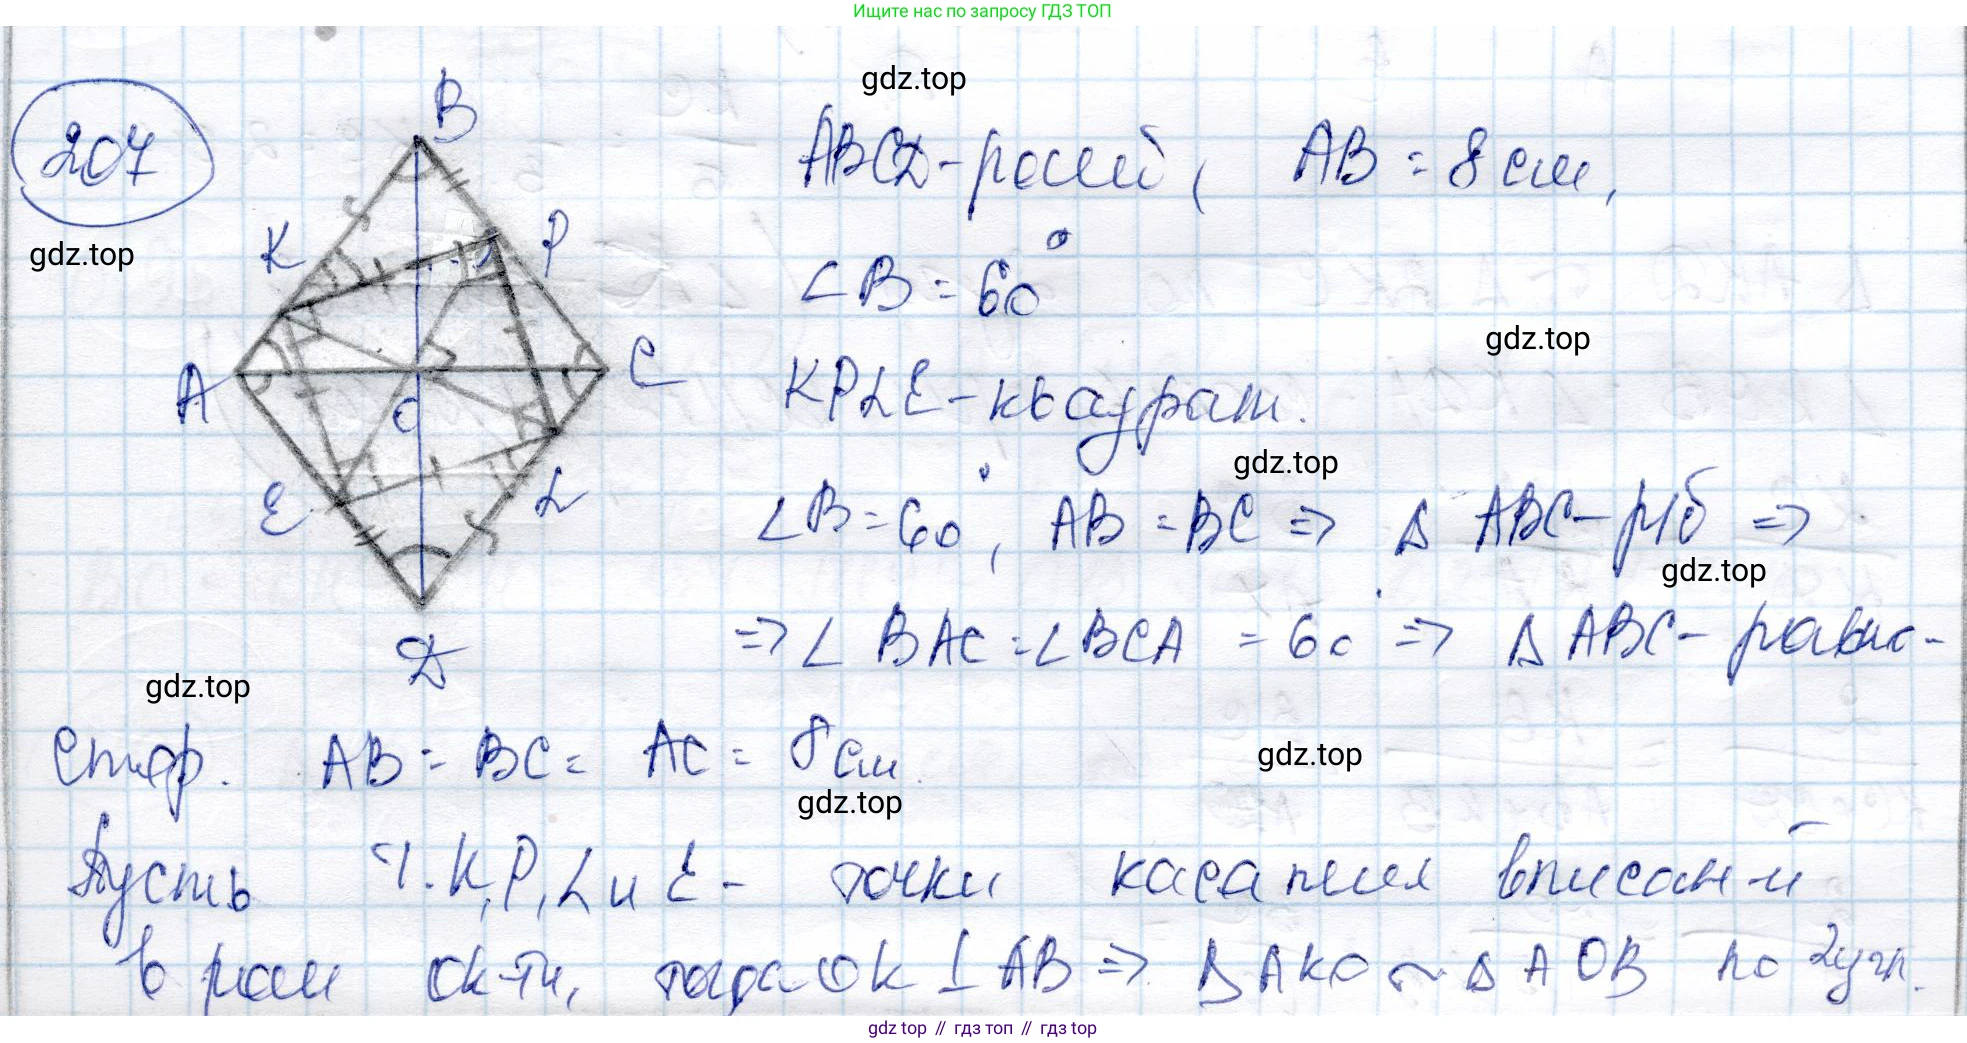 Ищите нас по запросу ГДЗ ТОП
207
gdz.top
B
K
P
A
C
O
E
L
D
gdz.top
ABCD-ромб, AB = 8 см,
∠B = 60°
gdz.top
KPLE-квадрат.
gdz.top
∠B = 60°, AB = BC => Δ ABC - р/б =>
gdz.top
=> ∠ BAC = ∠BCA = 60° => Δ ABC - равно-
gdz.top
стор. AB = BC = AC = 8 см.
gdz.top
gdz.top
Пусть т. K, P, L и E - точки касания вписан-й
в ромб ок-ти, тогда OK ⊥ AB => Δ AKO ~ Δ AOB по 2 угл.
gdz top // гдз топ // гдз top